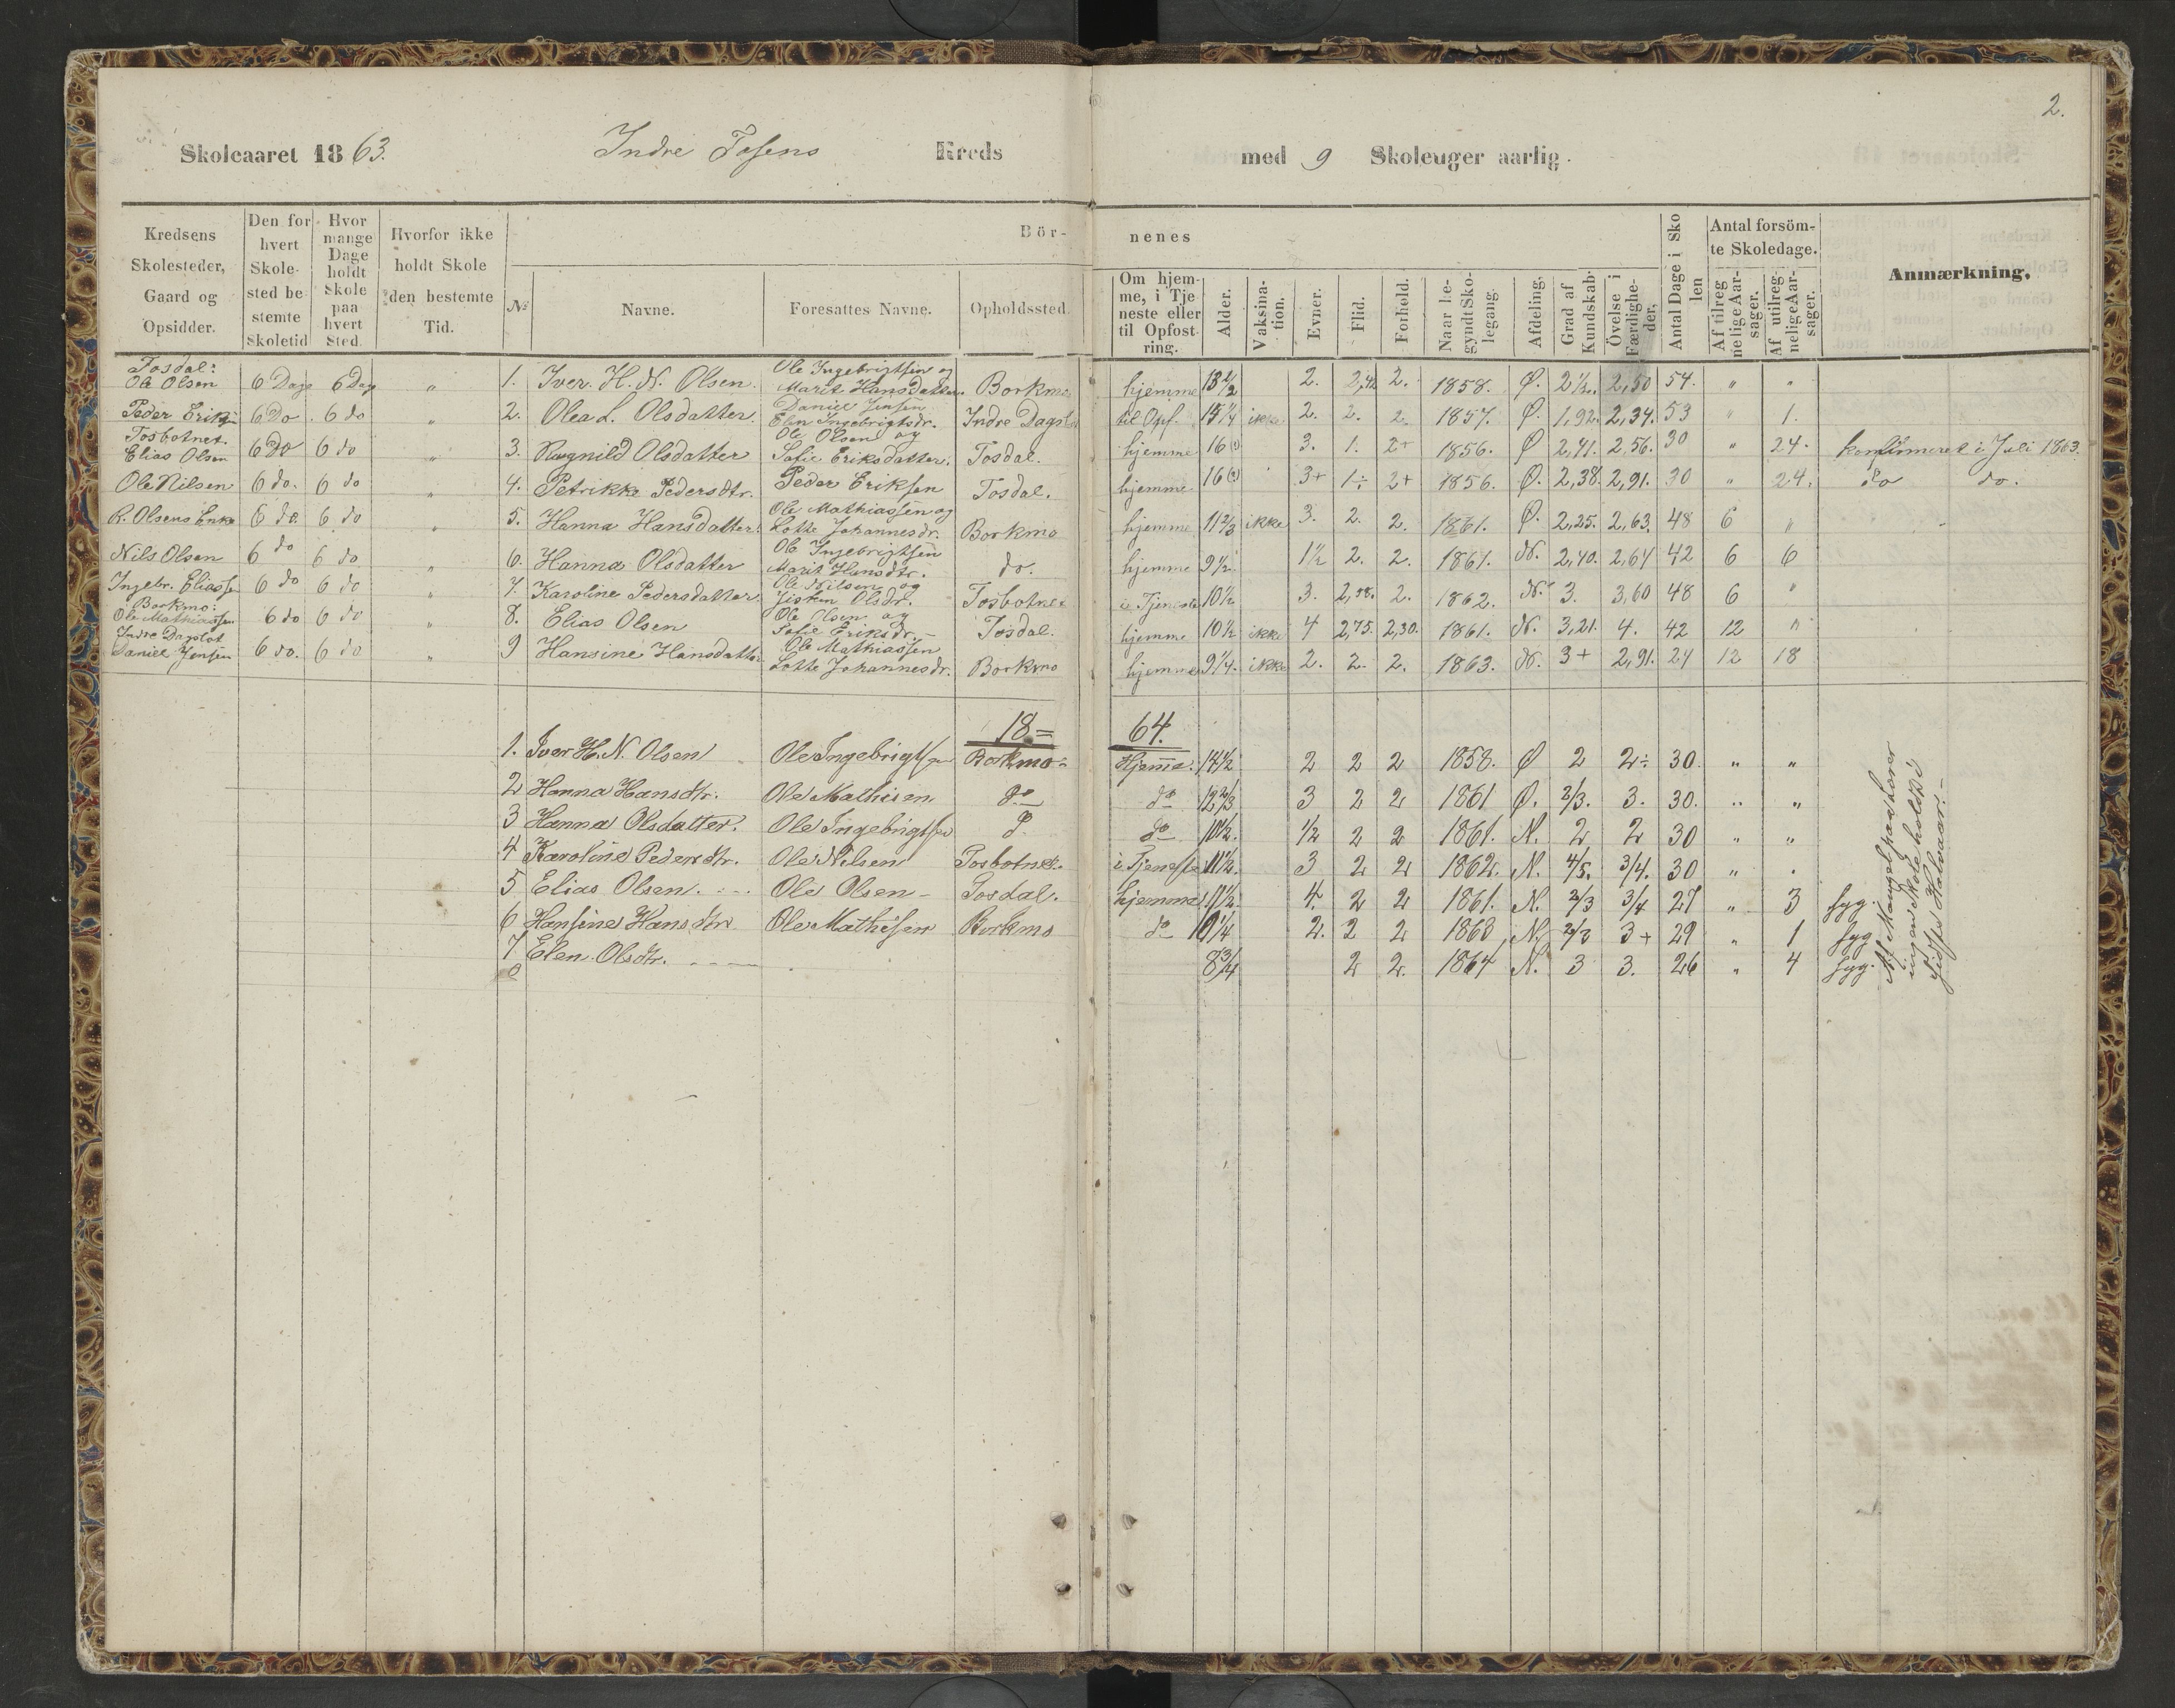 2.
Skoleaaret 1863. Indre Tosens Kreds med 9 Skoleuger aarlig.
Kredsens Skolesteder, Gaard og Opsidder.
Den for hvert Skolested bestemte Skoletid
Hvor mange Dage holdt Skole paa hvert Sted.
Hvorfor ikke holdt Skole den bestemte Tid.
Bör- nenes
No
Navne.
Foresattes Navne.
Opholdssted.
Om hjemme, i Tjeneste eller til Opfostring.
Alder.
Vaksination.
Evner.
Flid.
Forhold.
Naar begyndt Skolegang.
Afdeling.
Grad af Kundskab
Övelse i Færdigheder.
Antal Dage i Skolen
Antal forsömte Skoledage.
Af tilregnelige Aarsager.
Af utilregnelige Aarsager.
Anmærkning.
Tosdal:
Ole Olsen 6 Dage 6 Dag " 1. Iver. H. N. Olsen. Ole Ingebrigtsen og Marit Hansdatter. Borkmo hjemme 13 1/2 2. 2,42 2. 1858. Ø. 2 1/2. 2,50 54. " "
Peder Eriksen 6 Do 6 do 2. Olea L. Olsdatter. Daniel Jensen Elen Ingebrigtsdr. Indre Dagslot til Opf. 15 1/4 ikke 2. 2. 2. 1857. Ø. 1,92. 2,34. 53 " 1.
Tosbotnet.
Elias Olsen 6 Do 6 do " 3. Ragnild Olsdatter Ole Olsen og Sofie Eriksdatter. Tosdal. hjemme 16 3. 1. 2+ 1856. Ø 2,41. 2,56. 30 " 24. konfirmeret i Juli 1863.
Ole Nilsen 6 do. 6 do " 4. Petrikke Pedersdtr. Peder Eriksen Tosdal. hjemme 16 3+ 1÷ 2+ 1856. Ø. 2,38. 2,91. 30 " 24. do do.
R. Olsens Enke 6 do 6 do " 5. Hanna Hansdatter. Ole Mathiassen og Lotte Johannesdr. Borkmo hjemme 11 2/3 ikke 3. 2. 2. 1861. Ø. 2,25. 2,63. 48 6 "
Nils Olsen 6 do 6 do " 6. Hanna Olsdatter Ole Ingebrigtsen Marit Hansdtr. do. hjemme 9 1/2 1 1/2 2. 2. 1861. N. 2,40. 2,64 42 6 6
Ingebr. Eliassen 6 do 6 do " 7. Karoline Pedersdatter. Ole Nilsen og Olsdr. Tosbotnet i Tjeneste 10 1/2 3. 2. 1862. N. 3. 3,60 48 6 "
Borkmo:
Ole Mathiassen 6 do 6 do " 8. Elias Olsen Ole Olsen og Sofie Eriksdr. Tosdal. hjemme 10 1/2 ikke 4 2,75. 2,30. 1861. N. 3,21. 4. 42 12 "
Indre Dagslot
Daniel Jensen 6 do. 6 do " 9 Hansine Hansdatter Ole Mathiassen Lotte Johannesdr. Borkmo hjemme 9 1/4. ikke 2. 2. 2. 1863. N. 3+ 2,91. 24 12 18
18= 64.
1. Iver H. N. Olsen Ole Ingebrigtsen Borkmo Hjeme. 14 1/2 2 2 2 1858. Ø 2 2÷ 30. " "
2 Hanna Hansdtr. Ole Mathisen do do 12 2/3 3 2 2 1861 Ø. 2/3. 3. 30. " "
3 Hanna Olsdatter. Ole Ingebrigtsen do do 10 1/2. 1/2 2 2 1861. N. 2 2 30 " "
4 Karoline Pedersdtr. Ole Nilsen Tosbotnet. i Tjeneste 11 1/2. 3 2 2 1862. N. 4/5. 3/4. 30 " "
5 Elias Olsen. Ole Olsen Tosdal. hjemme 11 1/2. 4. 2 2 1861. N. 2/3 3/4 27 " 3 syg.
6 Hansine Hansdtr Ole Mathisen Borkmo do 10 1/4 2. 2 2 1863 N. 2/3 3+ 29 " 1 syg
7 Elen Olsdtr. 8 3/4 2 2. 1864 N. 3 3. 26 " 4 syg.
8
Af Mangel paa Lærer
ingen Skole holdt i
sidste Halvaar.